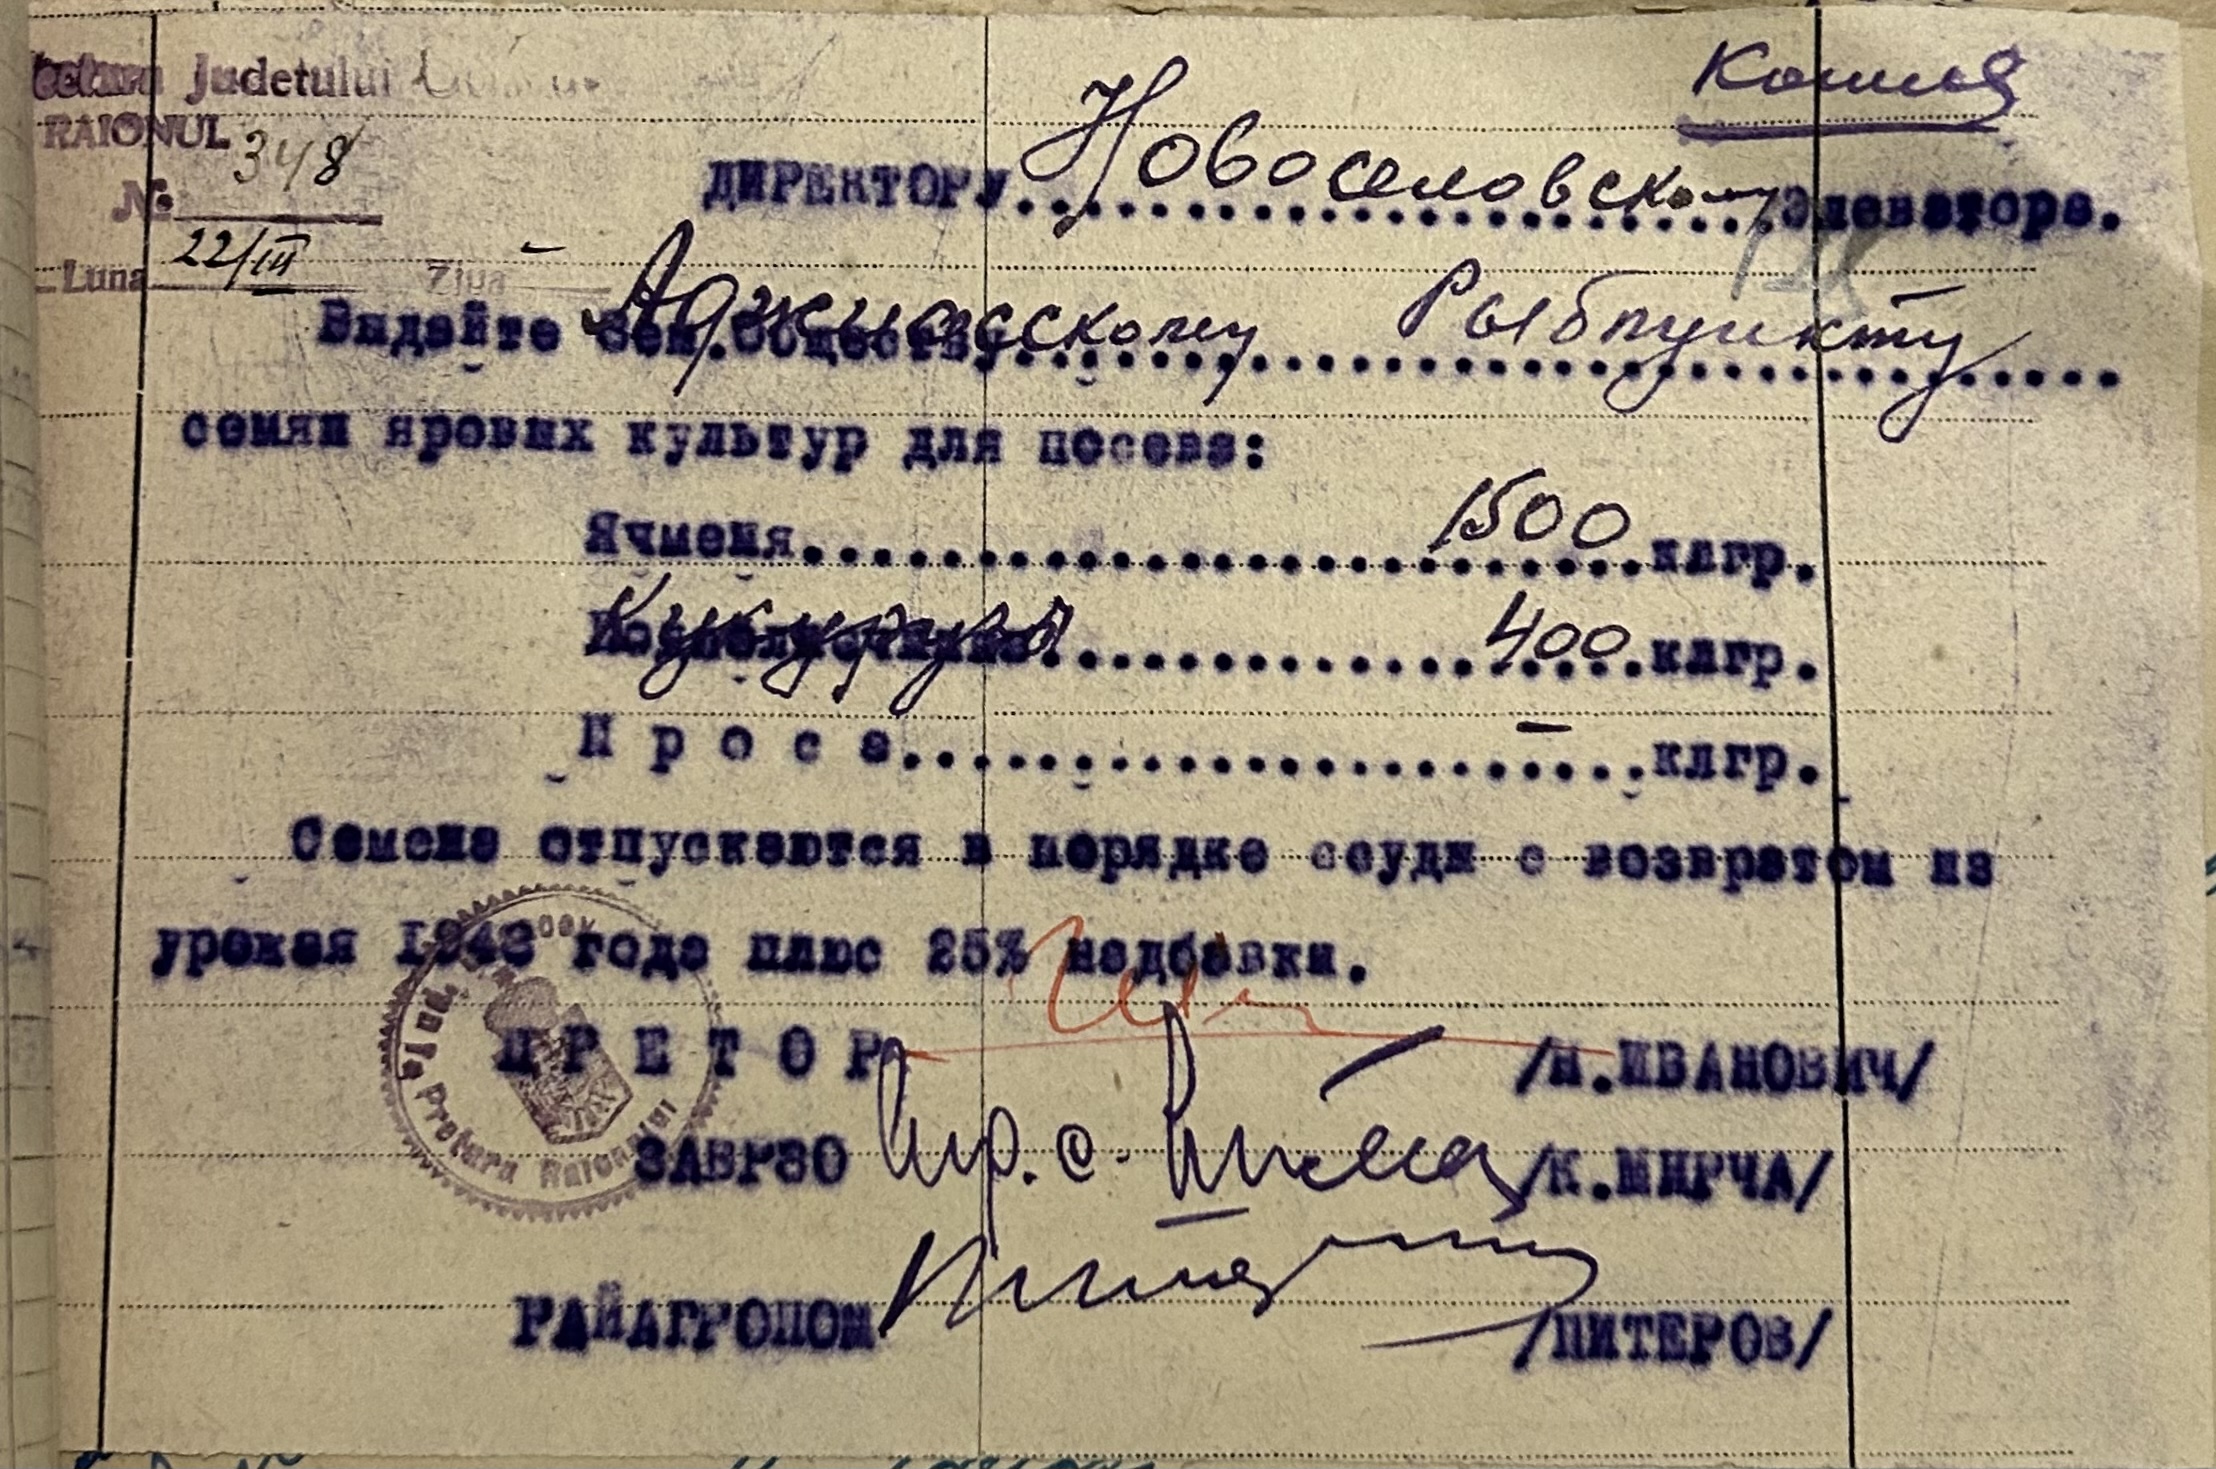 Judetului
Копия
RAIONUL
348
№
ДИРЕКТОРУ Новоселовском элеватора.
Luna 22/III Ziua -
Выдайте Аджиасскому Рыбпункту
семян яровых культур для посева:
Ячменя 1500 клгр.
Кукурузы 400 клгр.
Проса - клгр.
Семена отпускаются в порядке ссуды с возвратом из
урожая 1942 года плюс 25% надбавки.
ПРЕТОР /Н.ИВАНОВИЧ/
ЗАВРЗО /К.МИРЧА/
РАЙАГРОНОМ /ПИТЕРОВ/
Pretura Raionului